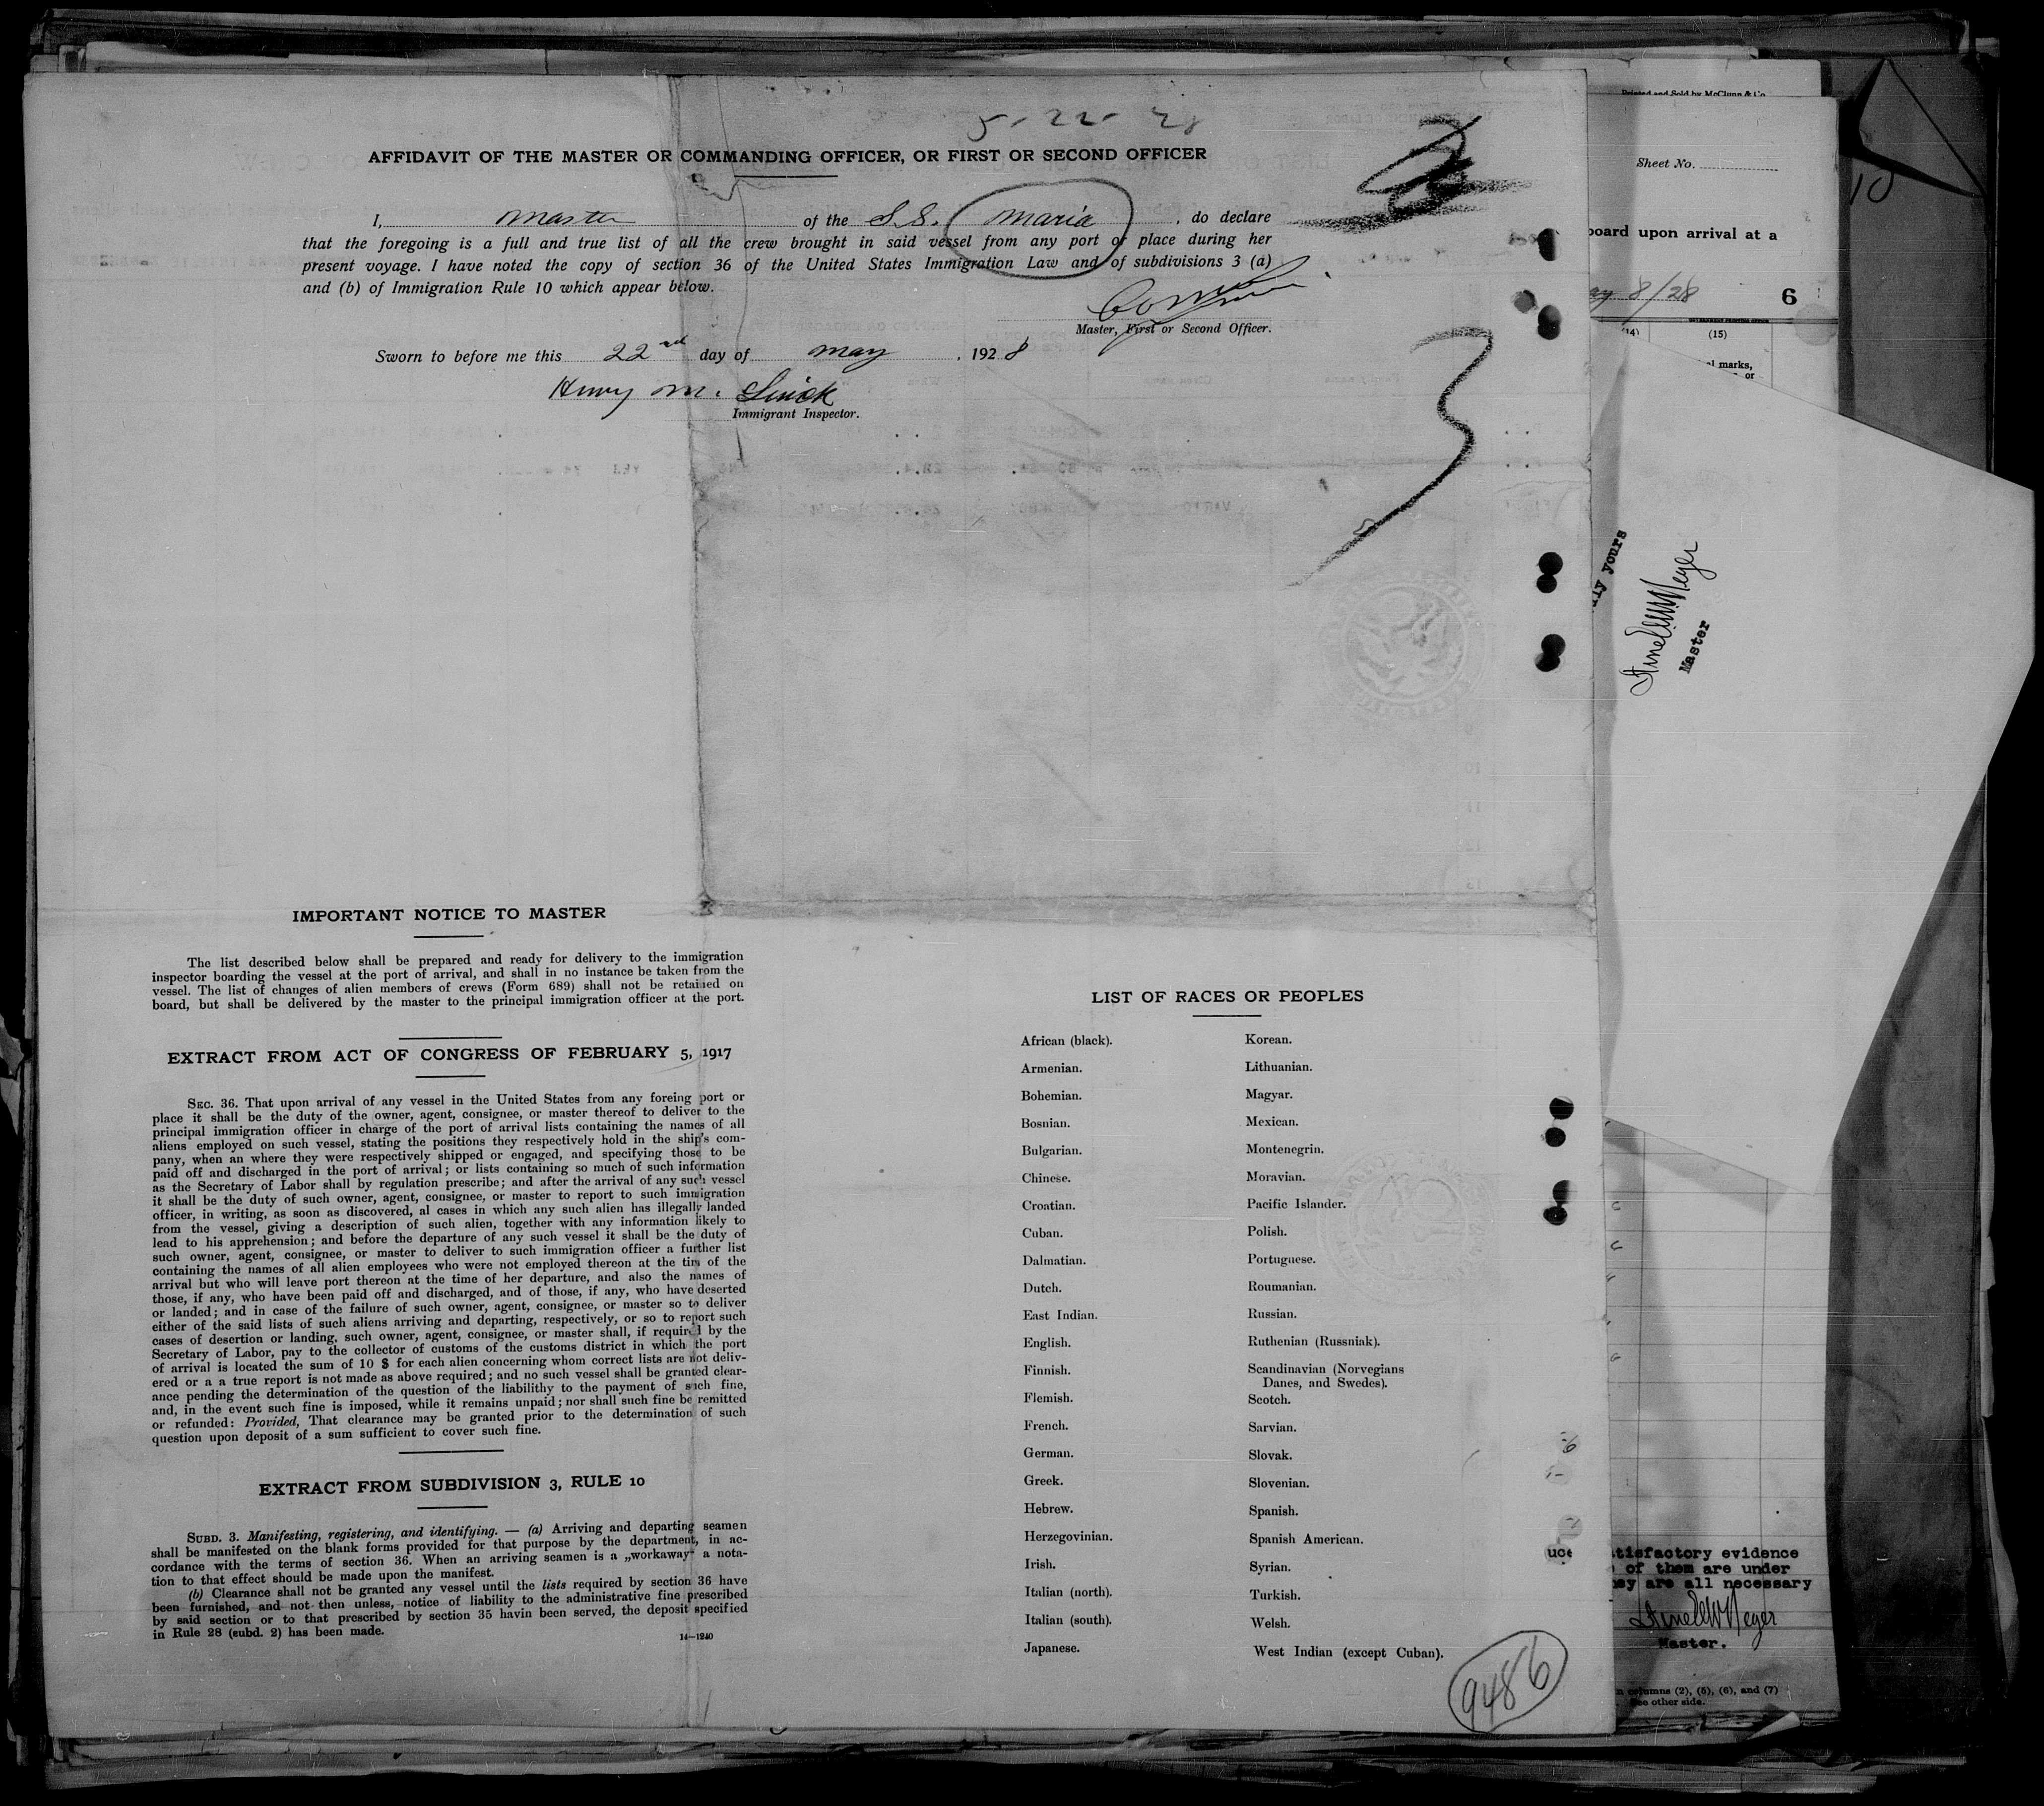 5-22-28
AFFIDAVIT OF THE MASTER OR COMMANDING OFFICER, OR FIRST OR SECOND OFFICER
I, Master of the S.S. Maria, do declare
that the foregoing is a full and true list of all the crew brought in said vessel from any port or place during her
present voyage. I have noted the copy of section 36 of the United States Immigration Law and of subdivisions 3 (a)
and (b) of Immigration Rule 10 which appear below.
Master, First or Second Officer.
Sworn to before me this 22nd day of May, 1928
Henry M.
Immigrant Inspector.
IMPORTANT NOTICE TO MASTER
The list described below shall be prepared and ready for delivery to the immigration
inspector boarding the vessel at the port of arrival, and shall in no instance be taken from the
vessel. The list of changes of alien members of crews (Form 689) shall not be retained on
board, but shall be delivered by the master to the principal immigration officer at the port.
EXTRACT FROM ACT OF CONGRESS OF FEBRUARY 5, 1917
SEC. 36. That upon arrival of any vessel in the United States from any foreing port or
place it shall be the duty of the owner, agent, consignee, or master thereof to deliver to the
principal immigration officer in charge of the port of arrival lists containing the names of all
aliens employed on such vessel, stating the positions they respectively hold in the ship's com-
pany, when an where they were respectively shipped or engaged, and specifying those to be
paid off and discharged in the port of arrival; or lists containing so much of such information
as the Secretary of Labor shall by regulation prescribe; and after the arrival of any such vessel
it shall be the duty of such owner, agent, consignee, or master to report to such immigration
officer, in writing, as soon as discovered, al cases in which any such alien has illegally landed
from the vessel, giving a description of such alien, together with any information likely to
lead to his apprehension; and before the departure of any such vessel it shall be the duty of
such owner, agent, consignee, or master to deliver to such immigration officer a further list
containing the names of all alien employees who were not employed thereon at the tim of the
arrival but who will leave port thereon at the time of her departure, and also the names of
those, if any, who have been paid off and discharged, and of those, if any, who have deserted
or landed; and in case of the failure of such owner, agent, consignee, or master so to deliver
either of the said lists of such aliens arriving and departing, respectively, or so to report such
cases of desertion or landing, such owner, agent, consignee, or master shall, if required by the
Secretary of Labor, pay to the collector of customs of the customs district in which the port
of arrival is located the sum of 10 $ for each alien concerning whom correct lists are not deliv-
ered or a a true report is not made as above required; and no such vessel shall be granted clear-
ance pending the determination of the question of the liabilithy to the payment of such fine,
and, in the event such fine is imposed, while it remains unpaid; nor shall such fine be remitted
or refunded: Provided, That clearance may be granted prior to the determination of such
question upon deposit of a sum sufficient to cover such fine.
EXTRACT FROM SUBDIVISION 3, RULE 10
SUBD. 3. Manifesting, registering, and identifying. — (a) Arriving and departing seamen
shall be manifested on the blank forms provided for that purpose by the department, in ac-
cordance with the terms of section 36. When an arriving seamen is a „workaway“ a nota-
tion to that effect should be made upon the manifest.
(b) Clearance shall not be granted any vessel until the lists required by section 36 have
been furnished, and not then unless, notice of liability to the administrative fine prescribed
by said section or to that prescribed by section 35 havin been served, the deposit specified
in Rule 28 (subd. 2) has been made.
14—1240
LIST OF RACES OR PEOPLES
African (black).
Armenian.
Bohemian.
Bosnian.
Bulgarian.
Chinese.
Croatian.
Cuban.
Dalmatian.
Dutch.
East Indian.
English.
Finnish.
Flemish.
French.
German.
Greek.
Hebrew.
Herzegovinian.
Irish.
Italian (north).
Italian (south).
Japanese.
Korean.
Lithuanian.
Magyar.
Mexican.
Montenegrin.
Moravian.
Pacific Islander.
Polish.
Portuguese.
Roumanian.
Russian.
Ruthenian (Russniak).
Scandinavian (Norvegians
Danes, and Swedes).
Scotch.
Sarvian.
Slovak.
Slovenian.
Spanish.
Spanish American.
Syrian.
Turkish.
Welsh.
West Indian (except Cuban).
9486
Printed and Sold by McClunn & Co.
Sheet No.
board upon arrival at a
8/28
6
(14)
(15)
marks,
or
10
yours
Master
uce
tisfactory evidence
of them are under
are all necessary
Master.
columns (2), (5), (6), and (7)
See other side.